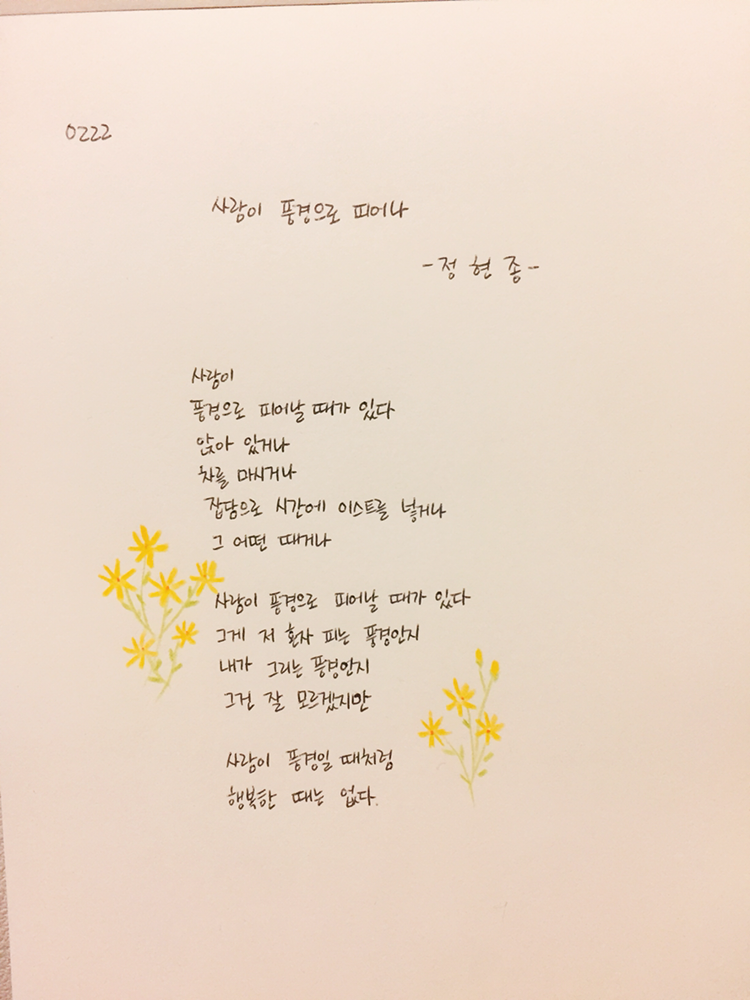 0222
사람이 풍경으로 피어나
-정현종-
사람이
풍경으로 피어날 때가 있다
앉아 있거나
차를 마시거나
잡담으로 시간에 이스트를 넣거나
그 어떤 때거나
사람이 풍경으로 피어날 때가 있다
그게 저 혼자 피는 풍경인지
내가 그리는 풍경인지
그건 잘 모르겠지만
사람이 풍경일 때처럼
행복한 때는 없다.